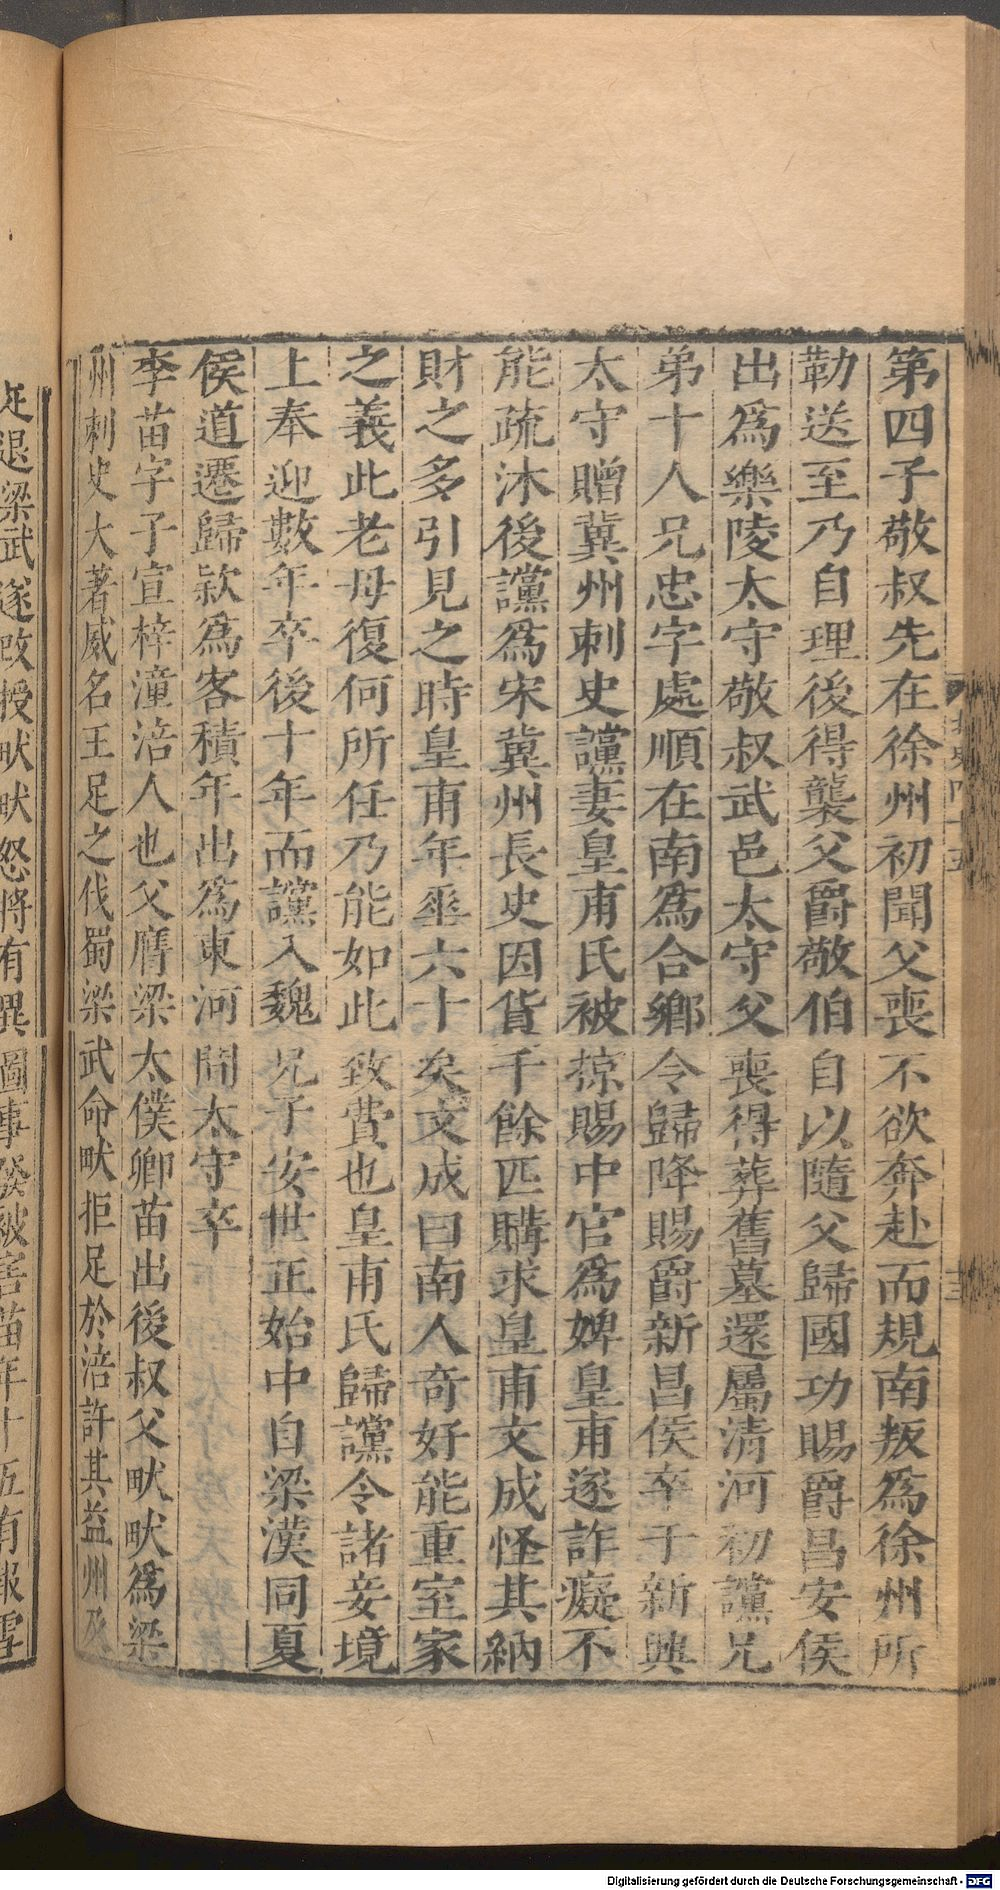 第四子敬叔先在徐州初聞父喪不欲奔赴而規南叛爲徐州所
勒送至乃自理後得襲父爵敬伯自以隨父歸國功賜爵昌安侯
出爲樂陵太守敬叔武邑太守父喪得葬舊墓還屬清河初讜兄
弟十人兄忠字處順在南爲合鄉令歸降賜爵新昌侯卒于新興
太守贈冀州刺史讜妻皇甫氏被掠賜中官爲婢皇甫遂詐癡不
能疏沐後讜爲宋冀州長史因貨千餘匹購求皇甫文成怪其納
財之多引見之時皇甫年垂六十矣文成曰南人奇好能重室家
之義此老母復何所任乃能如此致費也皇甫氏歸讜令諸妾境
上奉迎數年卒後十年而讜入魏兄子安世正始中自梁漢同夏
侯道遷歸款爲客積年出爲東河間太守卒
李苗字子宣梓潼涪人也父膺梁太僕卿苗出後叔父畎畎爲梁
州刺史大著威名王足之伐蜀梁武命畎拒足於涪許其益州及
足退梁武遂改授畎畎怒將有異圖事發被害苗年十五有報雪
Digitalisierung gefördert durch die Deutsche Forschungsgemeinschaft - DFG